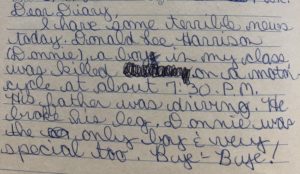 Dear Diary,
I have some terrible news
today. Donald Lee Harrison
(Donnie), a boy in my class
was killed on a motor
cycle at about 7:30 P.M.
His father was driving. He
broke his leg. Donnie was
the only boy & very
special too. Bye-Bye!